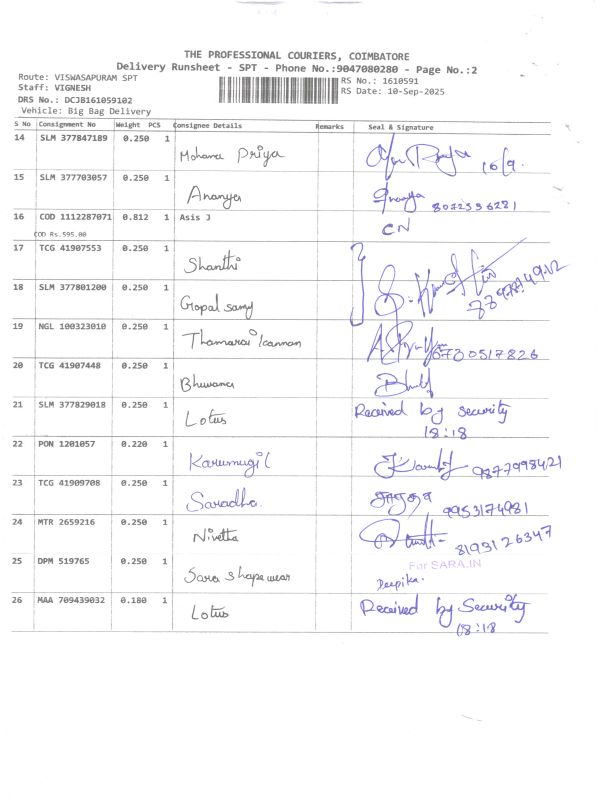 THE PROFESSIONAL COURIERS, COIMBATORE
Delivery Runsheet - SPT - Phone No.:9047080280 - Page No.:2
Route: VISWASAPURAM SPT
RS No.: 1610591
Staff: VIGNESH
RS Date: 10-Sep-2025
DRS No.: DCJB161059102
Vehicle: Big Bag Delivery
S No Consignment No Weight PCS Consignee Details Remarks Seal & Signature
14 SLM 377847189 0.250 1 Mohana Priya
15 SLM 377703057 0.250 1 Ananya
16 COD 1112287071 0.812 1 Asis J CN
COD Rs.595.00
17 TCG 41907553 0.250 1 Shanthi
18 SLM 377801200 0.250 1 Gopal samy
19 NGL 100323010 0.250 1
20 TCG 41907448 0.250 1 Bhuvana
21 SLM 377829018 0.250 1 Lotus Received by security
18:18
22 PON 1201057 0.220 1 Karumugil 9877998421
23 TCG 41909708 0.250 1 Saradha. 9953174981
24 MTR 2659216 0.250 1 Nivetha 8193126347
25 DPM 519765 0.250 1 Sara shape wear For SARA.IN
Deepika.
26 MAA 709439032 0.180 1 Lotus Received by Security
18:18